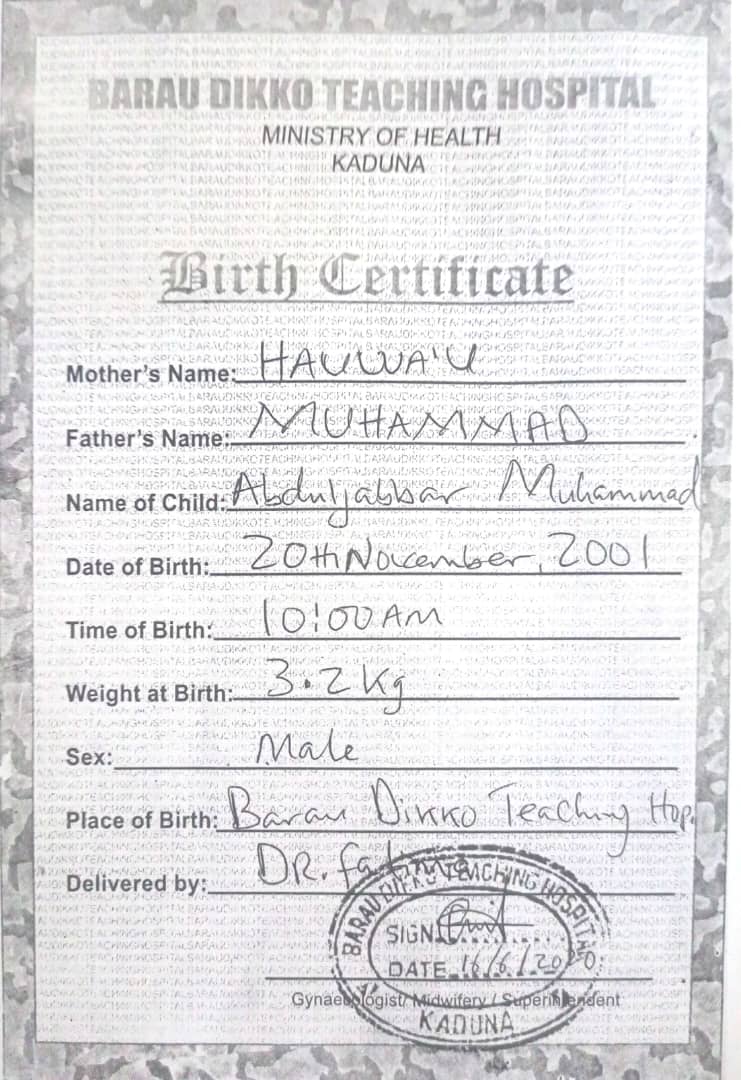 BARAU DIKKO TEACHING HOSPITAL
MINISTRY OF HEALTH
KADUNA
Birth Certificate
Mother's Name: HAUWA'U
Father's Name: MUHAMMAD
Name of Child: Abduljabbar Muhammad
Date of Birth: 20th November, 2001
Time of Birth: 10:00 AM
Weight at Birth: 3.2 kg
Sex: Male
Place of Birth: Barau Dikko Teaching Hop.
Delivered by: DR.
BARAU DIKKO TEACHING HOSPITAL
SIGN
DATE 16/6/2020
Gynaecologist/ Midwifery / Superintendent
KADUNA